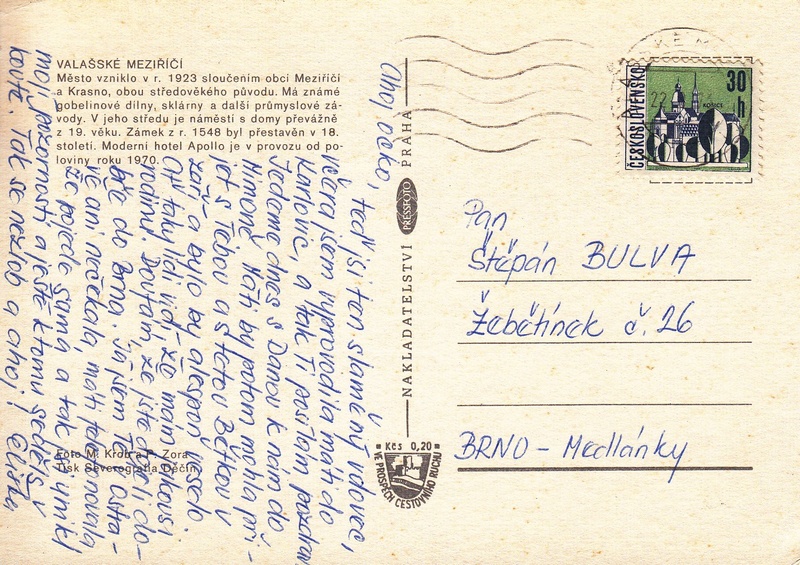 VALAŠSKÉ MEZIŘÍČÍ
Město vzniklo v r. 1923 sloučením obcí Meziříčí
a Krasno, obou středověkého původu. Má známé
gobelinové dílny, sklárny a další průmyslové zá-
vody. V jeho středu je náměstí s domy převážně
z 19. věku. Zámek z r. 1548 byl přestavěn v 18.
století. Moderní hotel Apollo je v provozu od po-
loviny roku 1970.
Foto M. Krob a P. Zora
Tisk Severografia Děčín
Ahoj, ocko, teď jsi ten slaměný vdovec,
včera jsem vyprovodila mati do
Karlovic, a tak Ti posílám pozdrav
Jedeme dnes s Danou k nám do
Mati by potom mohla při-
jet s Tebou a tetou Bětkou v
září a bylo by alespoň veselo
On tady lidi vidí, že mám takovou
rodinu. Doufám, že jste dojeli do-
bře do Brna. Já jsem Tě
ve ani nečekala, mati telefonovala
že pojede sama a tak jsi unikl
mojí pozornosti a ještě k tomu seděls v
koutě. Tak se nezlob a ahoj! Eliška
NAKLADATELSTVÍ PRESSFOTO PRAHA
Kčs 0,20
VE PROSPĚCH CESTOVNÍHO RUCHU
ČESKOSLOVENSKO
30 h
KOŠICE
Pan
Štěpán BULVA
Žebětínek č. 26
BRNO - Medlánky